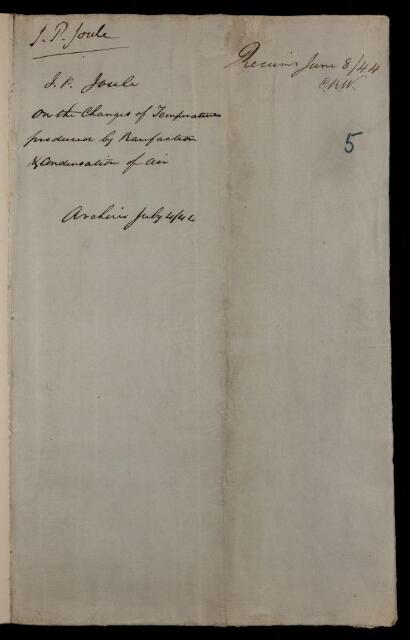 J. P. Joule
Received June 8/44
C.R.W.
5
J. P. Joule
On the Changes of Temperature
produced by Rarefaction
& Condensation of Air
Archives July 4/44